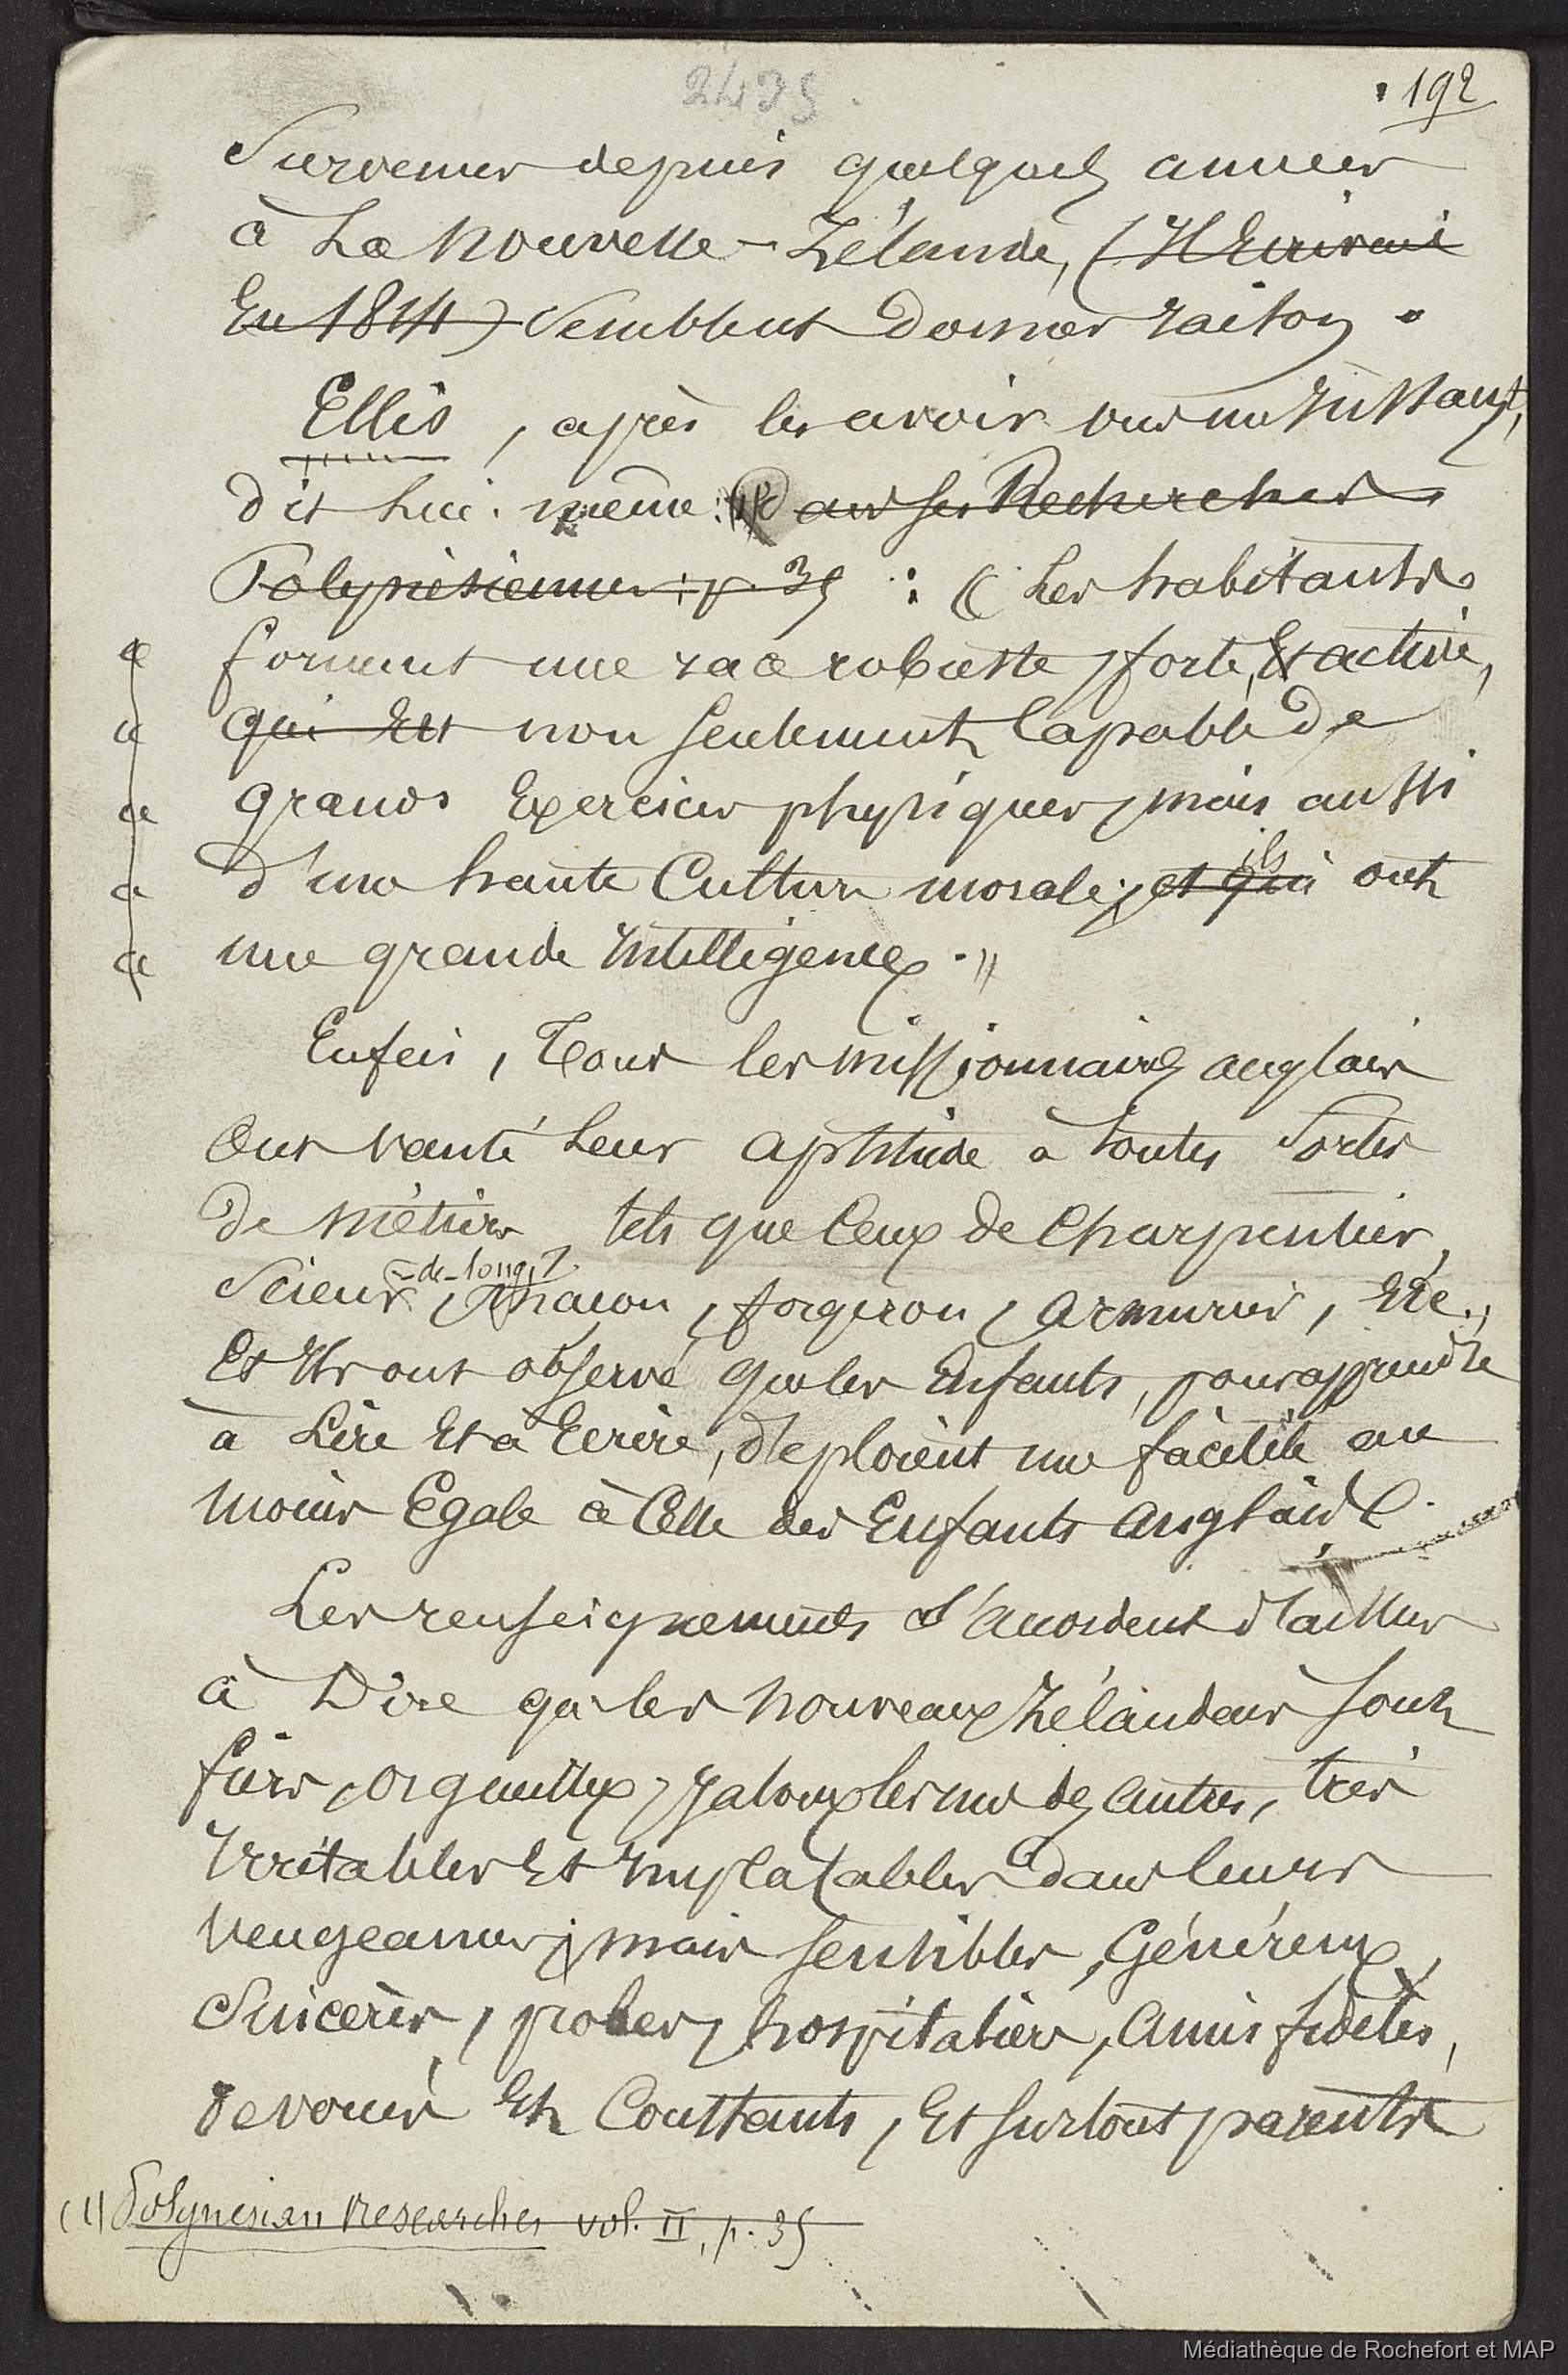 2435.
192
Survenus depuis quelques années
à La Nouvelle-Zélande, (Il Ecrivait
En 1814) Semblent donner raison.
Ellis, après les avoir vus un instant,
dit lui-même: (1) dans ses Recherches
Polynésiennes: p. 35 : « Les habitants
« forment une race robuste, forte, Et active,
« qui Est non seulement Capable de
« grands Exercices physiques, mais aussi
« d'une haute Culture morale; et qui ils ont
« une grande Intelligence. »
Enfin, Tous les missionnaires anglais
Ont vanté Leur aptitude à toutes Sortes
de Métiers, tels que Ceux de Charpentier,
Scieur -de-long, Maçon, forgeron, Armurier, Etc.,
Et Ils ont observé que les Enfants, pour apprendre
à Lire Et à Ecrire, déploient une facilité au
Moins Egale à Celle des Enfants anglais.
Les renseignements s'accordent d'ailleurs
à Dire que les Nouveaux Zélandais sont
fiers, orgueilleux, Jaloux les uns des autres, très
Irritables Et Implacables dans leurs
Vengeances; mais sensibles, Généreux,
Sincères, probes, hospitaliers, Amis fidèles,
devoués Et Constants, Et surtout parents
(1) Polynesian Researches vol. II, p. 35
Médiathèque de Rochefort et MAP